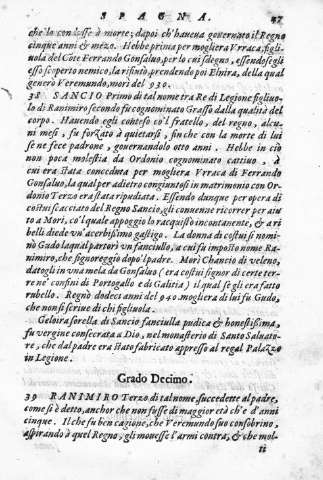 SPAGNA. 47
che lo condusse à morte; dapoi ch'haueua gouernato il Regno
cinque anni & mezo. Hebbe prima per mogliera Vrraca, figli
uola del Cōte Ferrando Gonsaluo, per lo cui sdegno, essendosegli
esso scoperto nemico, la rifiutò, prendendo poi Eluira, della qual
generò Veremundo, morì del 930.
38 SANCIO Primo di tal nome tra Re di Legione figliuo
lo di Ranimiro secondo fu cognominato Grasso dalla qualità del
corpo. Hauendo egli conteso cō'l fratello, del regno, alcu
ni mesi, fu forzato à quietarsi, fin che con la morte di lui
se ne fece padrone, gouernandolo otto anni. Hebbe in ciò
non poca molestia da Ordonio cognominato cattiuo, à
cui era stata conceduta per mogliera Vrraca di Ferrando
Gonsaluo, la qual per adietro congiuntosi in matrimonio con Or-
donio Terzo era stata ripudiata. Essendo dunque per opera di
costui scacciato del Regno Sancio, gli conuenne ricorrer per aiu-
to a Mori, co'l quale appoggio lo racquistò incontanente, & a ri
belli diede vn'acerbissimo gastigo. La donna di costui si nomi-
nò Guda laqual partorì vn fanciullo, a cui fu imposto nome Ra-
nimiro, che signoreggiò dopo'l padre. Morì Chancio di veleno,
datogli in vna mela da Gonsaluo (era costui signor di certe ter-
re ne' confini di Portogallo e di Galitia) il qual se gli era fatto
rubello. Regnò dodeci anni del 940. mogliera di lui fu Gudo,
che non si scriue di chi figliuola.
Geloira sorella di Sancio fanciulla pudica & honestissima,
fu vergine consecrata a Dio, nel monasterio di Santo Saluato-
re, che dal padre era stato fabricato appresso al regal Palazzo
in Legione.
Grado Decimo.
39 RANIMIRO Terzo di tal nome, succedette al padre,
come si è detto, anchor che non fusse di maggior età ch'e d'anni
cinque. Il che fu ben cagione, che Veremundo suo consobrino,
aspirando à quel Regno, gli mouesse l'armi contra, & che mol-
ti